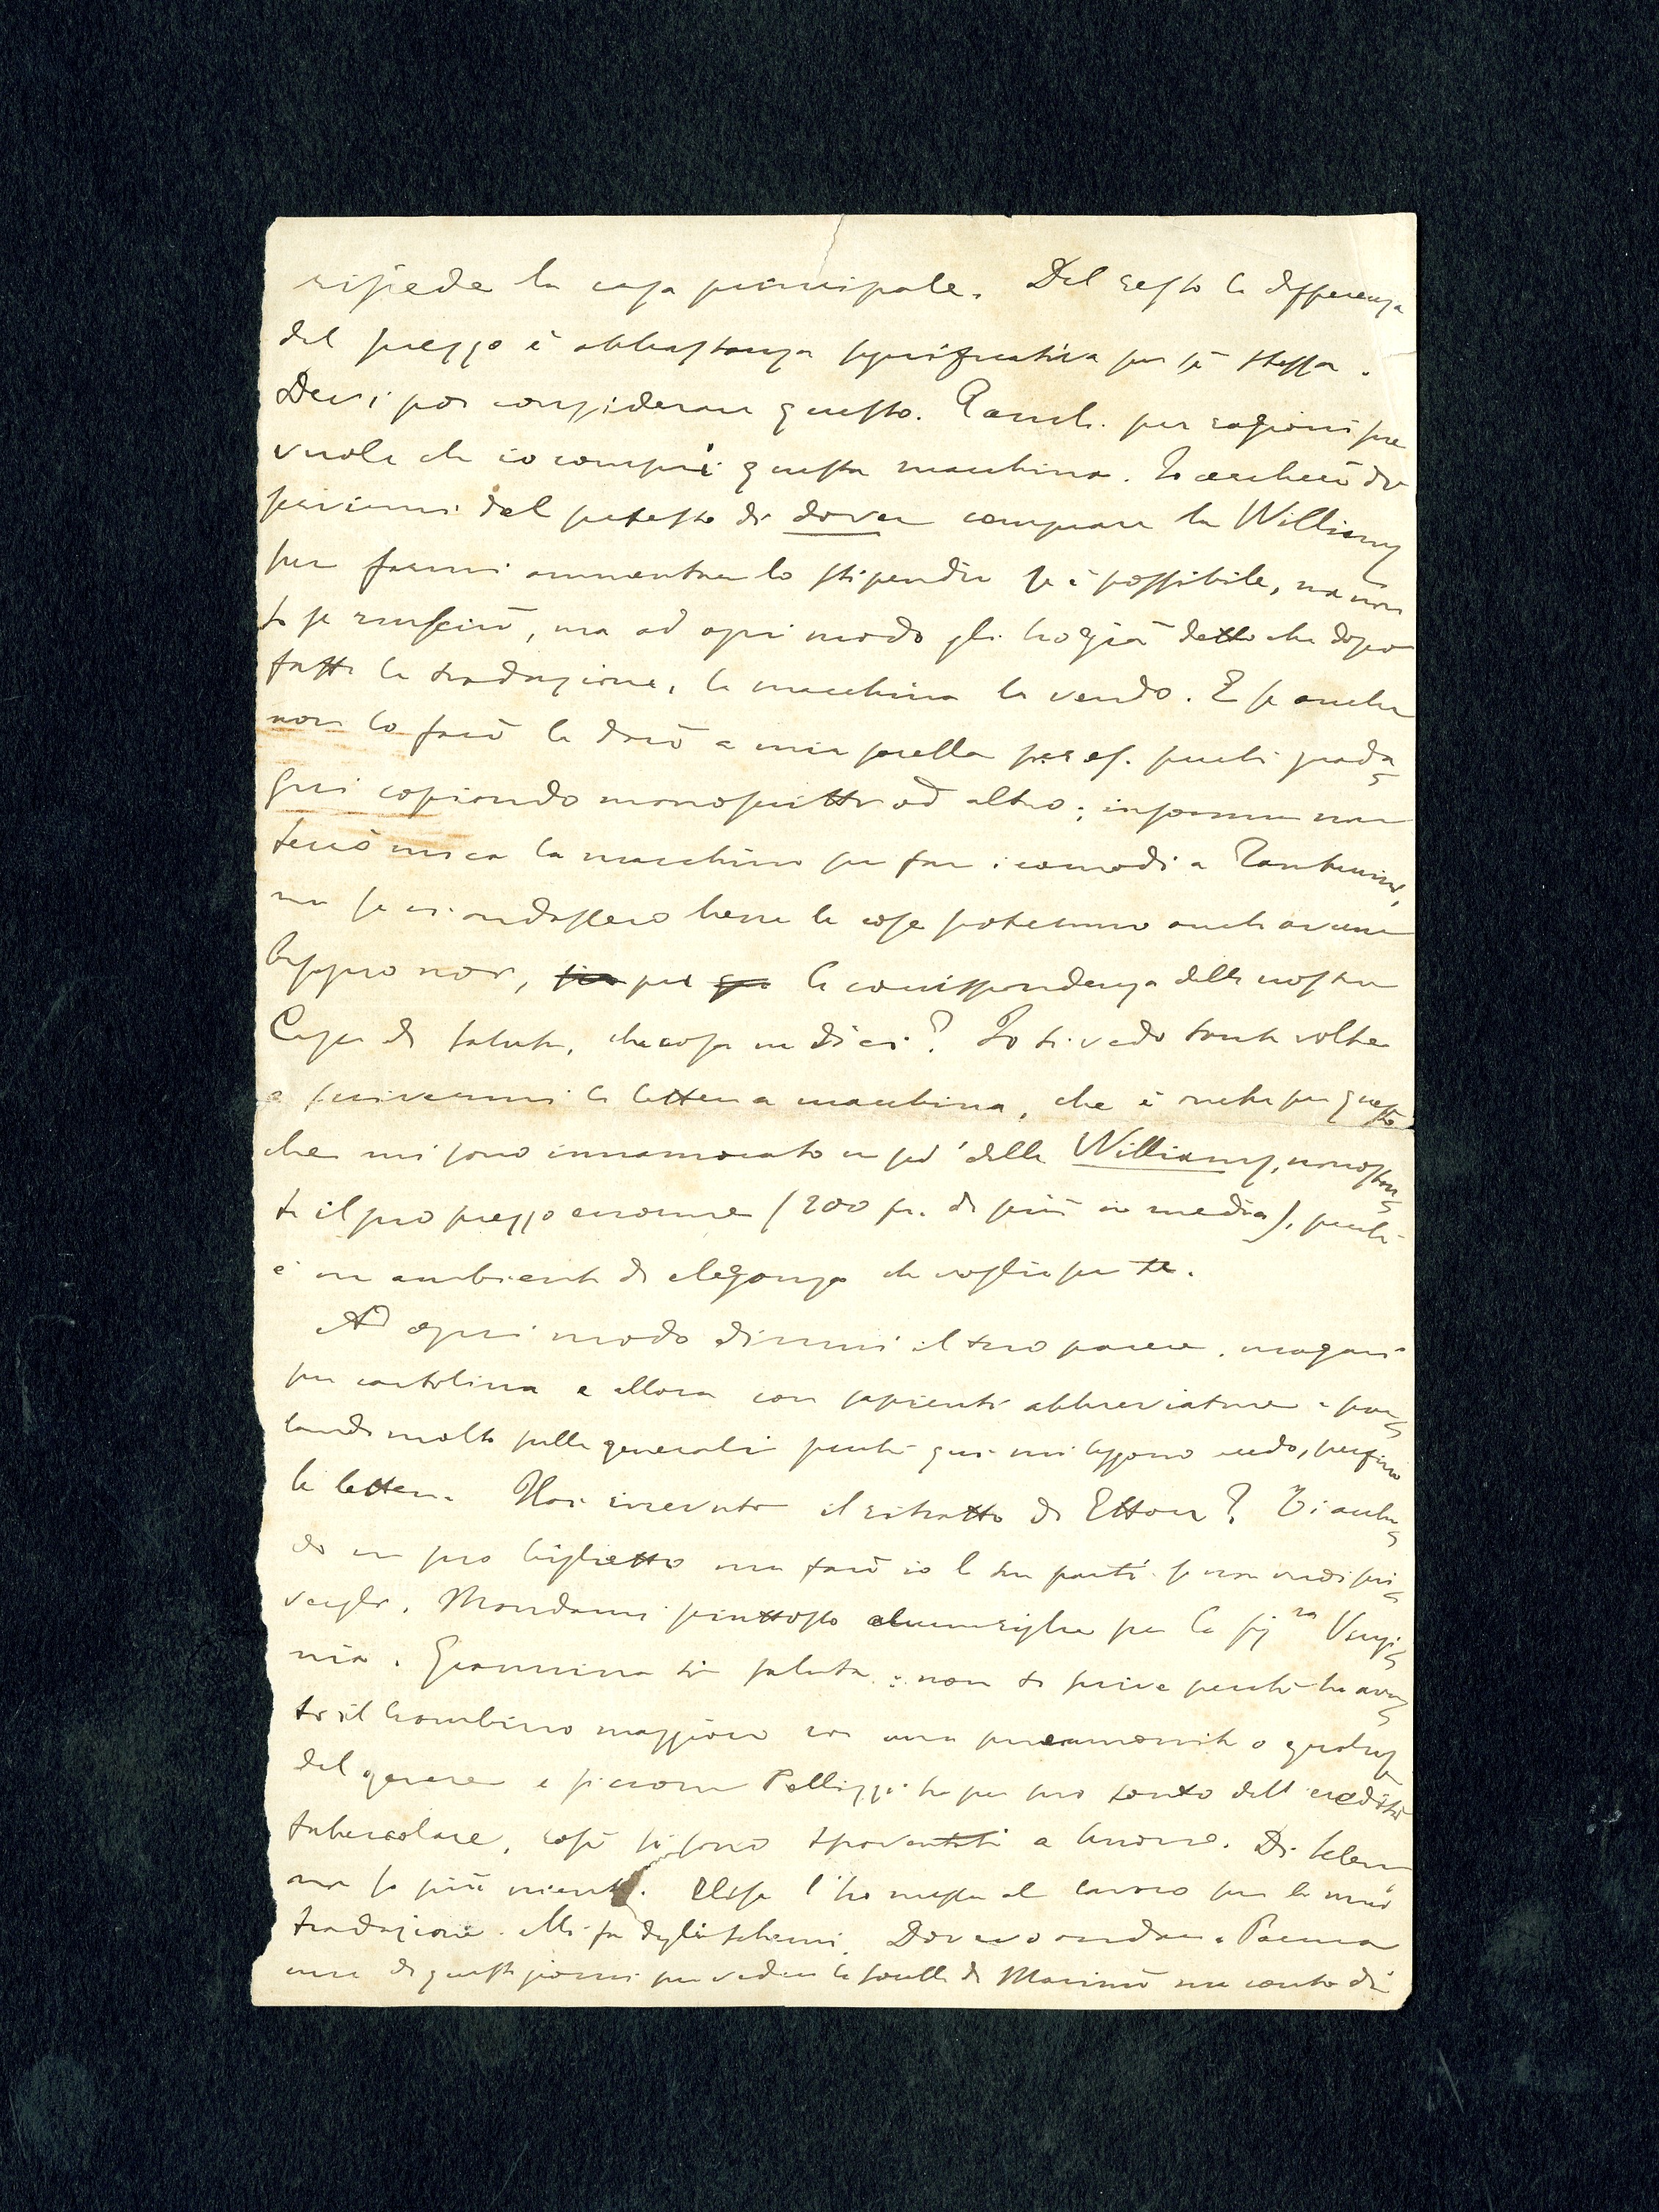 risiede la casa principale. Del resto la differenza
del prezzo è abbastanza significativa per sè stessa.
Devi poi considerare questo. per ragioni sue
vuole che io compri questa macchina. Io cercherò di
servirmi del pretesto di dover comprare la Williams
per farmi aummentare lo stipendio se è possibile, ma non
so se riuscirò, ma ad ogni modo gli ho già detto che dopo
fatta la traduzione, la macchina la vendo. E se anche
non lo farò la darò a mia sorella per es. perchè guada-
gni copiando manoscritti od altro; insomma non
terrò mica la macchina per far i comodi a
ma se ci andassero bene le cose potremmo anche averne
bisogno noi, per la corrispondenza della nostra
Casa di salute, che cosa ne dici? Io ti vedo tante volte
a scrivermi le lettere a macchina, che è anche per questo
che mi sono innamorato un po' della Williams, nonostan-
te il suo prezzo enorme (200 fr. di più in media), perchè
è un ambiente di eleganza che voglio per te.
Ad ogni modo dimmi il tuo parere, magari
per cartolina e allora con sapienti abbreviature e par-
lando molto sulle generali perchè qui mi leggono credo, perfino
le lettere. Hai ricevuto il ritratto di Ettore? Ti acclu-
do un suo biglietto ma farò io le tue parti se non vuoi scri-
vergli. Mandami piuttosto due righe per la sig.ra Virgi-
nia. Giannina ti saluta: non ti scrive perchè ha avu-
to il bambino maggiore con una pneumonite o qualcosa
del genere e siccome Pellizzi ha per suo conto dell'eredità
tubercolare, così si sono spaventati a
non so più niente. Elisa l'ho messa al lavoro per la mia
traduzione. Mi fa degli schemi. Dovevo andare a Parma
uno di questi giorni per vedere la sorella di ma conto di